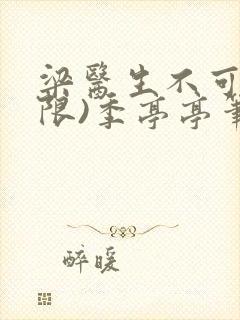 梁醫生不可
限)季亭亭
醉暖